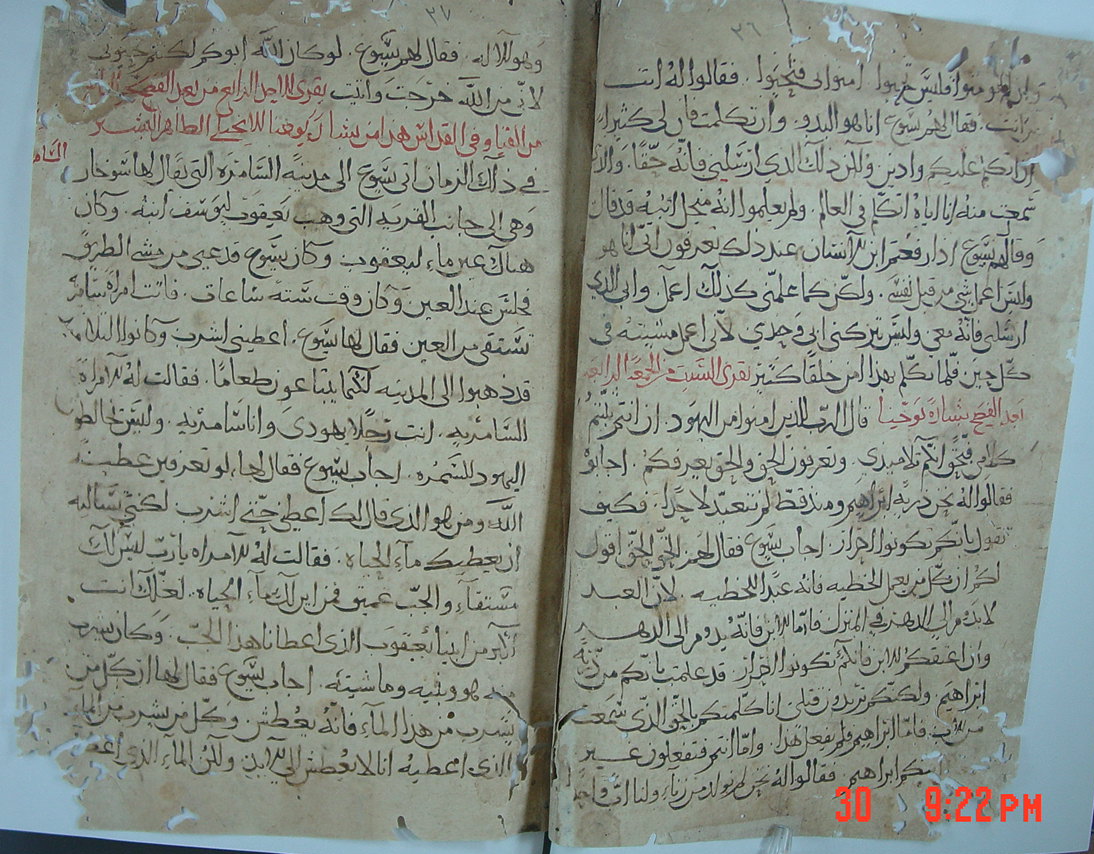 ٣٦
وان لم تومنوا فليس تحيوا امنوا بي فتحيوا . فقالوا له انت
من انت . فقال لهم يسوع انا هو البدو . وان تكلمت فان لي كثيرا
اراكم عليكم وادين ولكن ذلك الذي ارسلني فانه حقا . والذي
سمعت منه انا اياه اتكلم في العالم . ولم يعلموا انه من اجل ابيه قد قال
وقال لهم يسوع اذا رفعتم ابن الانسان عند ذلك تعرفون اني انا هو
وليس اعمل شي من قبل نفسي . ولكن كما علمني كذلك اعمل وابي الذي
ارسلني فانه معي وليس تركني ابي وحدي لاني اعمل مشيئته في
كل حين . فلما تكلم بهذا امن خلقا كثير يقرى السبت من الجمعه الرابعه
بعد الفصح بشارة يوحنا قال الرب للذين امنوا من اليهود . ان انتم ثبتم
كلامي فبحق انكم تلاميذي . وتعرفون الحق والحق يعرفكم . اجابو
فقالوا له نحن ذرية ابراهيم ومنذ قط لم نتعبد لاحدا . فكيف
تقول بانكم تكونوا احرار . اجاب يسوع فقال لهم الحق الحق اقول
لكم ان كل من يعمل الخطيه فانه عبد الخطيه . لان العبد
لا يدوم الى الدهر في المنزل فاما الابن فانه يدوم الى الدهر
وان اعتقكم الابن فانكم تكونوا احرار . قد علمت بانكم من ذرية
ابراهيم ولكنكم تريدون قتلي انا كلمتكم بالحق الذي سمعت
من الاب فاما ابراهيم فلم يفعل هذا . واما انتم فتفعلون غير
ابيكم ابراهيم فقالوا له نحن لم نولد من زناء ولنا اب واحدا
٣٧
وهو الاله . فقال لهم يسوع . لو كان الله ابوكم لكنتم تحبوني
لاني من الله خرجت واتيت يقرى الاحد الرابع من بعد الفصح
من القيامه وفي القداس هذا من بشارة يوحنا الانجيلي الطاهر البشير
في ذلك الزمان اتى يسوع الى مدينه السامره التي يقال لها سوخار
وهي الى جانب القريه التي وهب يعقوب ليوسف ابنه . وكان
هناك عين ماء ليعقوب وكان يسوع قد عيي من مشي الطريق
فجلس عند العين وكان وقت ستة ساعات . فاتت امراة سامرة
تستقي من العين فقال لها يسوع . اعطيني اشرب وكانوا التلاميذ
قد ذهبوا الى المدينه لكيما يبتاعون طعاما . فقالت له الامراة
السامريه . انت رجلا يهودي وانا سامريه . وليس تخالط
اليهود للسمره . اجاب يسوع فقال لها ، لو تعرفين عطيه
الله ومن هو الذي قال لك اعطيني اشرب لكنتي تساليه
ان يعطيك ماء الحياه . فقالت له الامراه يا رب ليس لك
مستقاء والجب عميق فمن اين لك ماء الحياه . لعلك انت
اكبر من ابينا يعقوب الذي اعطانا هذا الجب . وكان شرب
منه هو وبنيه وماشيته . اجاب يسوع فقال لها ان كل من
يشرب من هذا الماء فانه يعطش وكل من يشرب من الماء
الذي اعطيه انا لا يعطش الى الابد ولكن الماء الذي اعطيه
30 9:22 PM